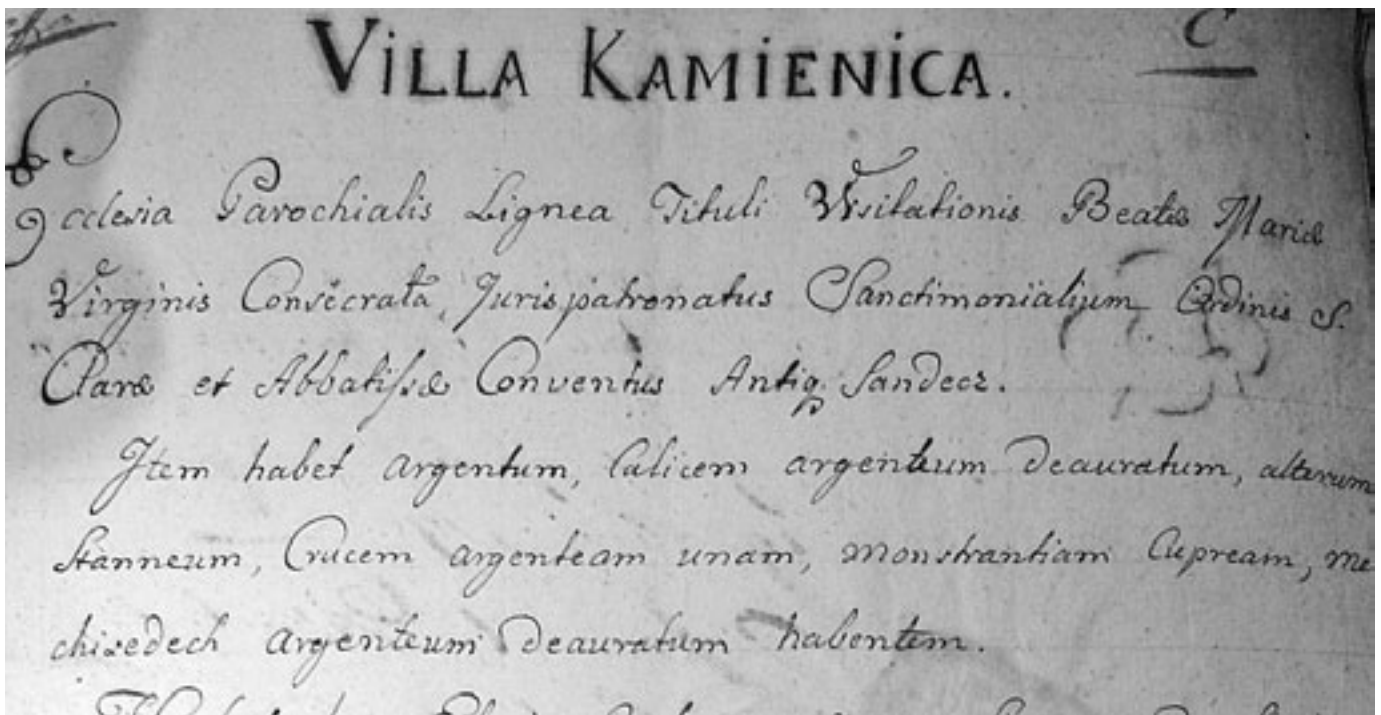 C
VILLA KAMIENICA.
Ecclesia Parochialis Lignea Tituli Visitationis Beatæ Mariæ
Virginis Consecrata, Jurispatronatus Sanctimonialium Ordinis S.
Claræ et Abbatissæ Conventus Antiq. Sandecz.
Item habet argentum, Calicem argenteum deauratum, alterum
Stanneum, Crucem argenteam unam, monstrantiam Cupream, Me
chisedech argenteum deauratum habentem.